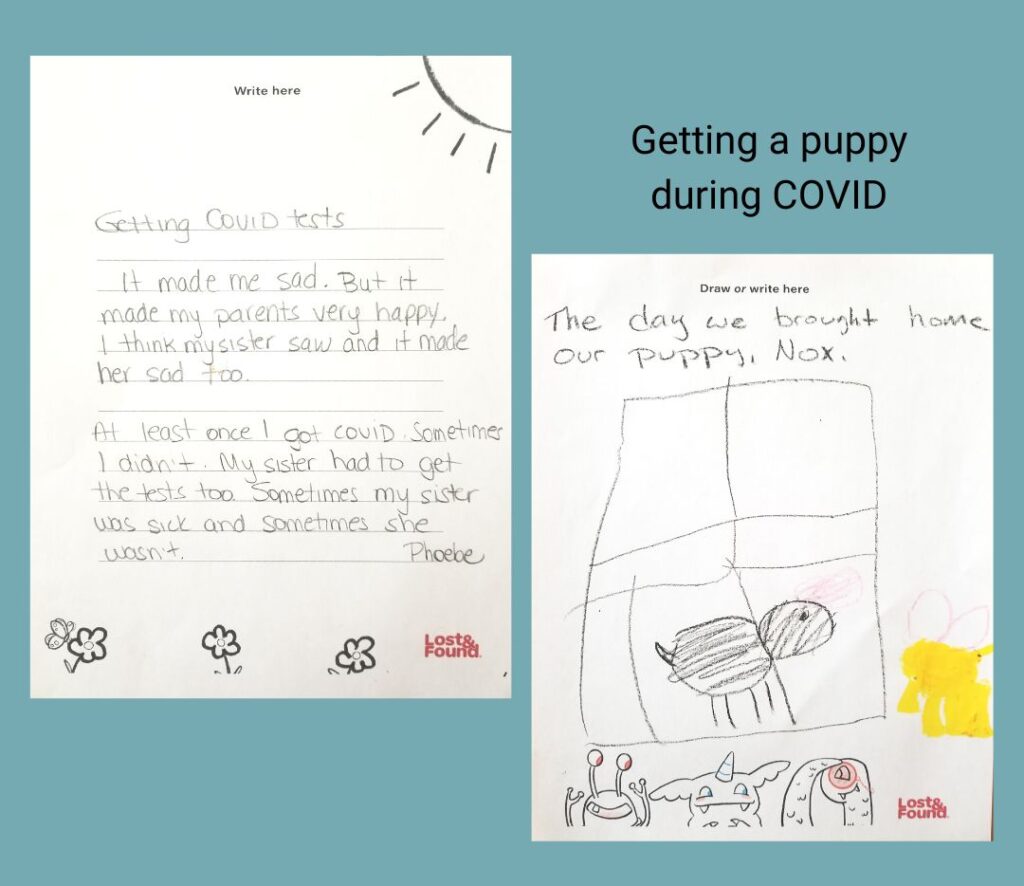 Write here
Getting COVID tests
It made me sad. But it
made my parents very happy.
I think my sister saw and it made
her sad too.
At least once I got covid. Sometimes
I didn't. My sister had to get
the tests too. Sometimes my sister
was sick and sometimes she
wasn't. Phoebe
Lost&
Found
Getting a puppy
during COVID
Draw or write here
The day we brought home
our puppy, Nox.
Lost&
Found